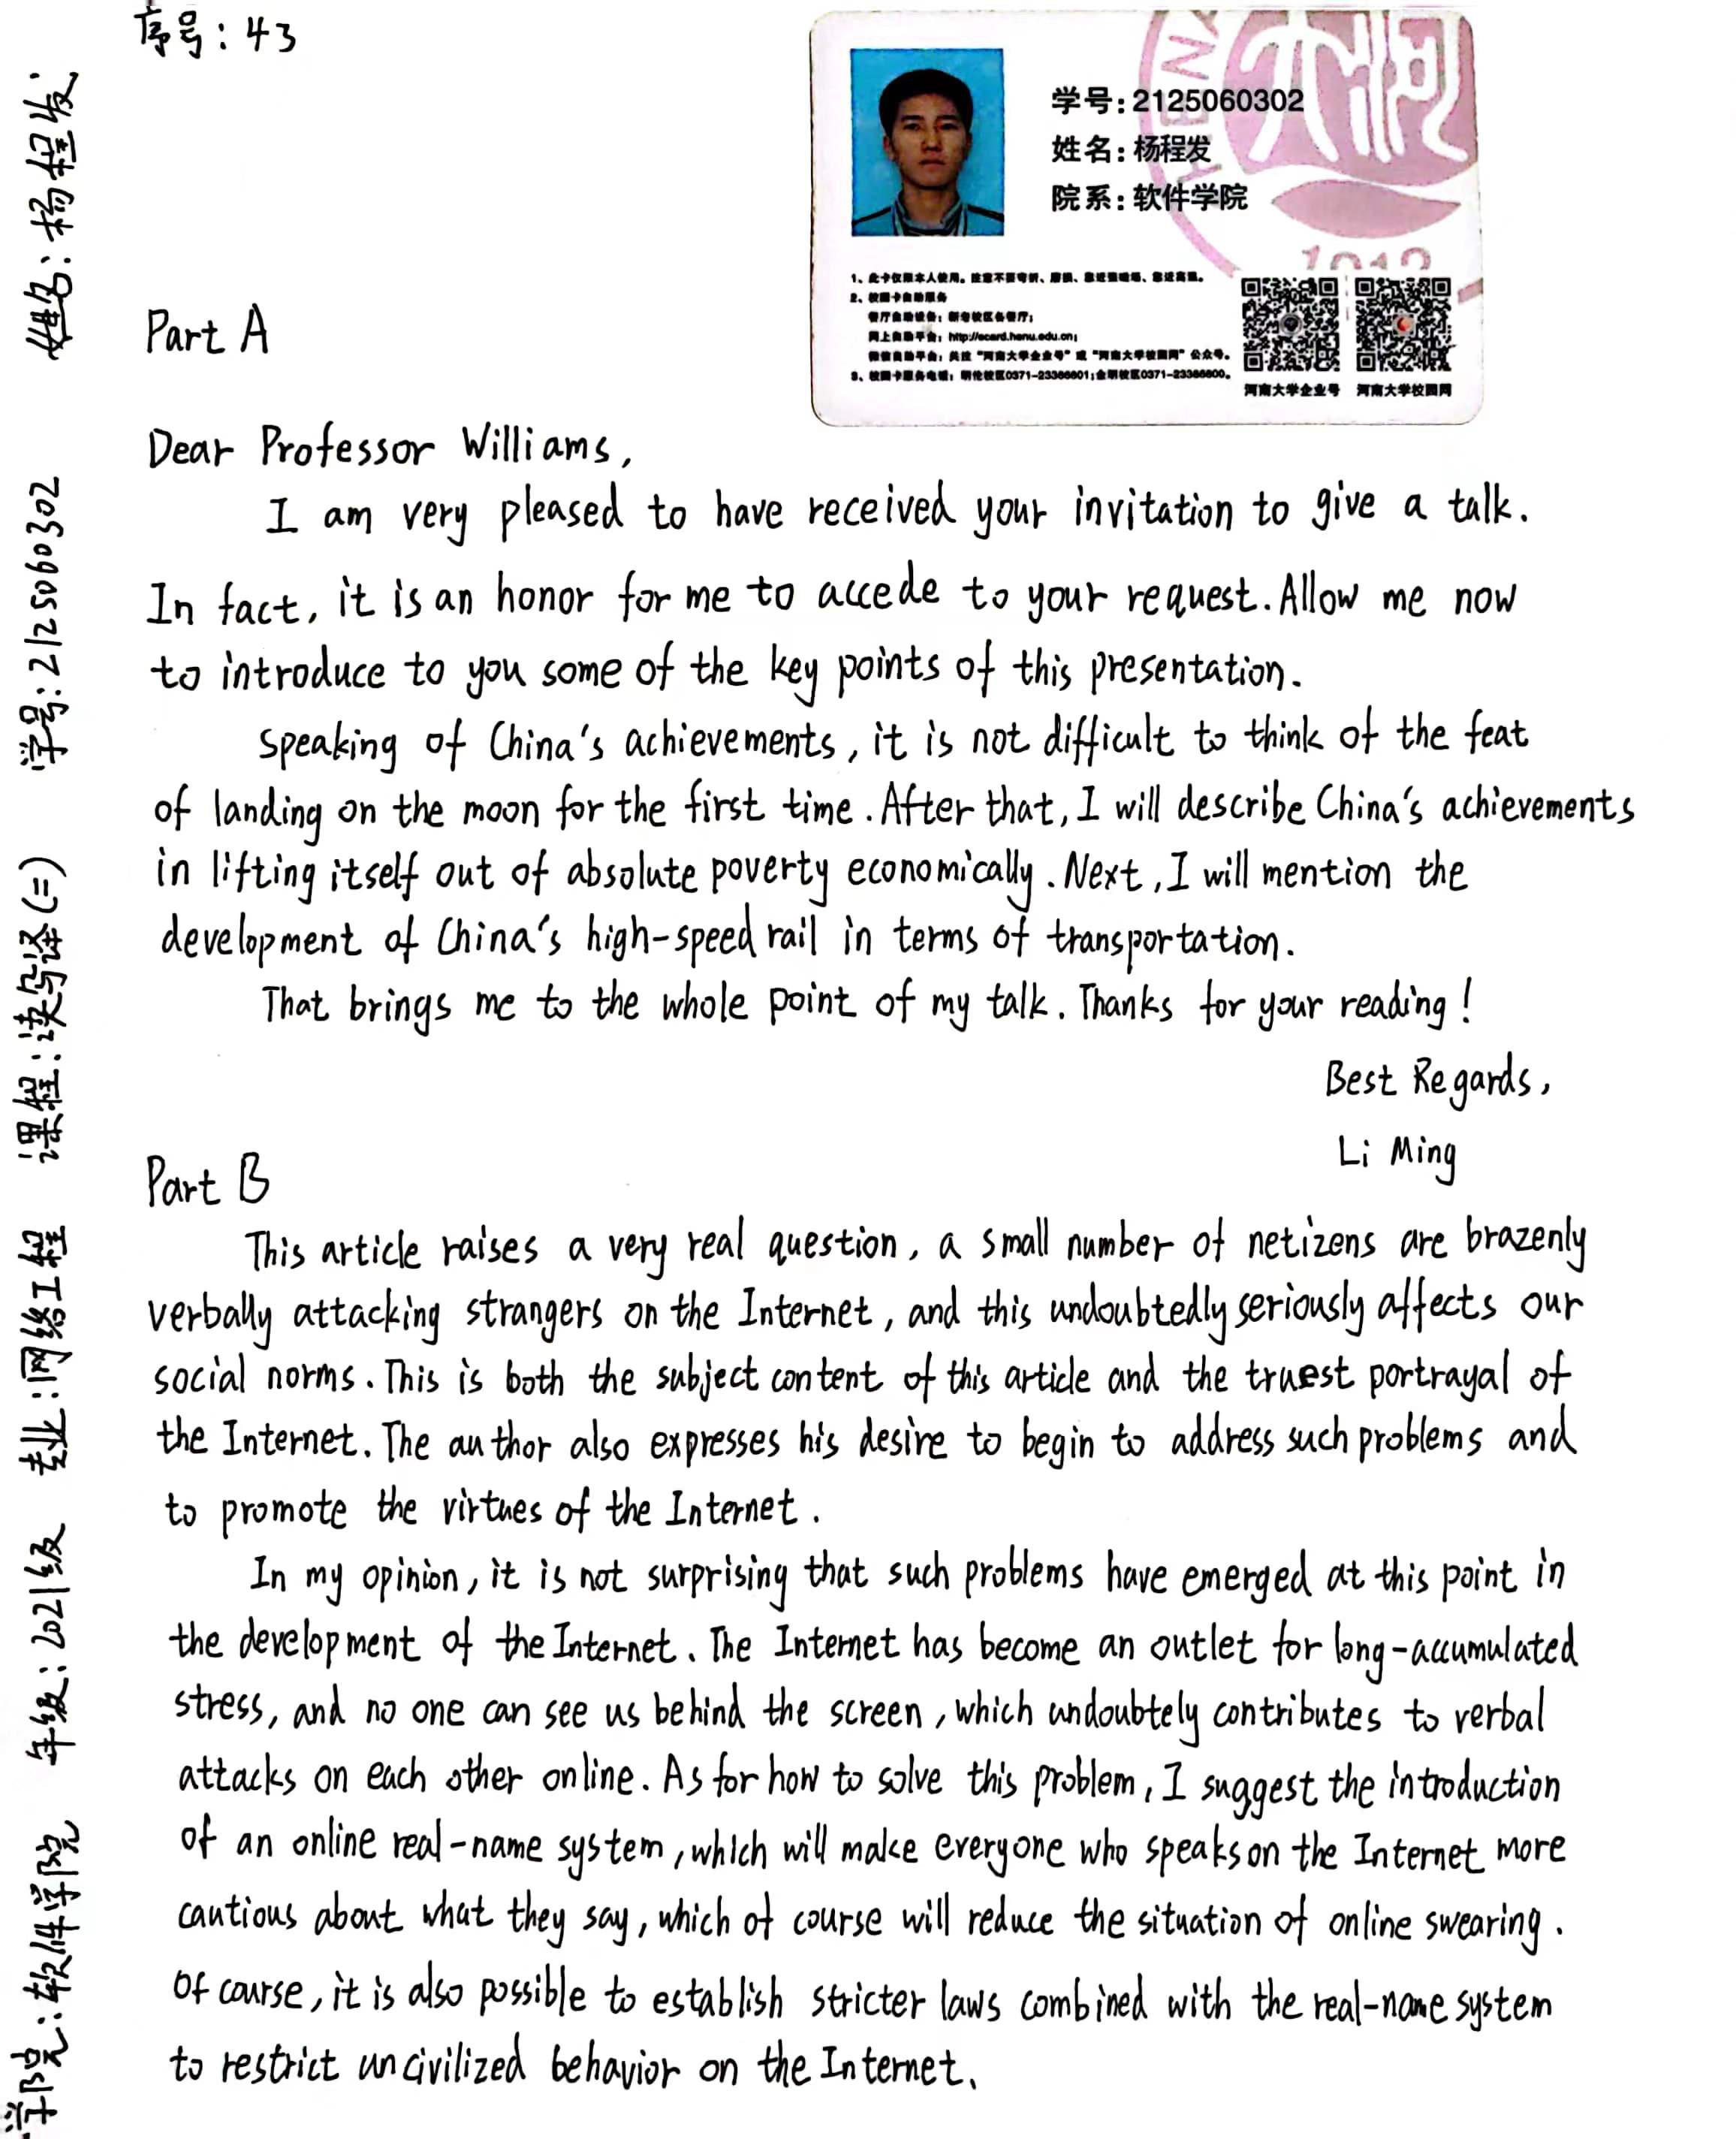 序号: 43
学号: 2125060302
姓名: 杨程发
院系: 软件学院
1、此卡仅限本人使用。注意不要弯折、磨损、忌近强磁场、忌近高温。
2、校园卡自助服务
餐厅自助设备: 新老校区各餐厅;
网上自助平台: http://ecard.henu.edu.cn;
微信自助平台: 关注“河南大学企业号”或“河南大学校园网”公众号。
3、校园卡服务电话: 明伦校区0371-23386801;金明校区0371-23386800。
河南大学企业号 河南大学校园网
1912
学院: 软件学院 年级: 2021级 专业: 网络工程 课程: 读写译(二) 学号: 2125060302 姓名: 杨程发
Part A
Dear Professor Williams,
I am very pleased to have received your invitation to give a talk.
In fact, it is an honor for me to accede to your request. Allow me now
to introduce to you some of the key points of this presentation.
Speaking of China's achievements, it is not difficult to think of the feat
of landing on the moon for the first time. After that, I will describe China's achievements
in lifting itself out of absolute poverty economically. Next, I will mention the
development of China's high-speed rail in terms of transportation.
That brings me to the whole point of my talk. Thanks for your reading!
Best Regards,
Li Ming
Part B
This article raises a very real question, a small number of netizens are brazenly
verbally attacking strangers on the Internet, and this undoubtedly seriously affects our
social norms. This is both the subject content of this article and the truest portrayal of
the Internet. The author also expresses his desire to begin to address such problems and
to promote the virtues of the Internet.
In my opinion, it is not surprising that such problems have emerged at this point in
the development of the Internet. The Internet has become an outlet for long-accumulated
stress, and no one can see us behind the screen, which undoubtely contributes to verbal
attacks on each other online. As for how to solve this problem, I suggest the introduction
of an online real-name system, which will make everyone who speaks on the Internet more
cautious about what they say, which of course will reduce the situation of online swearing.
Of course, it is also possible to establish stricter laws combined with the real-name system
to restrict uncivilized behavior on the Internet.